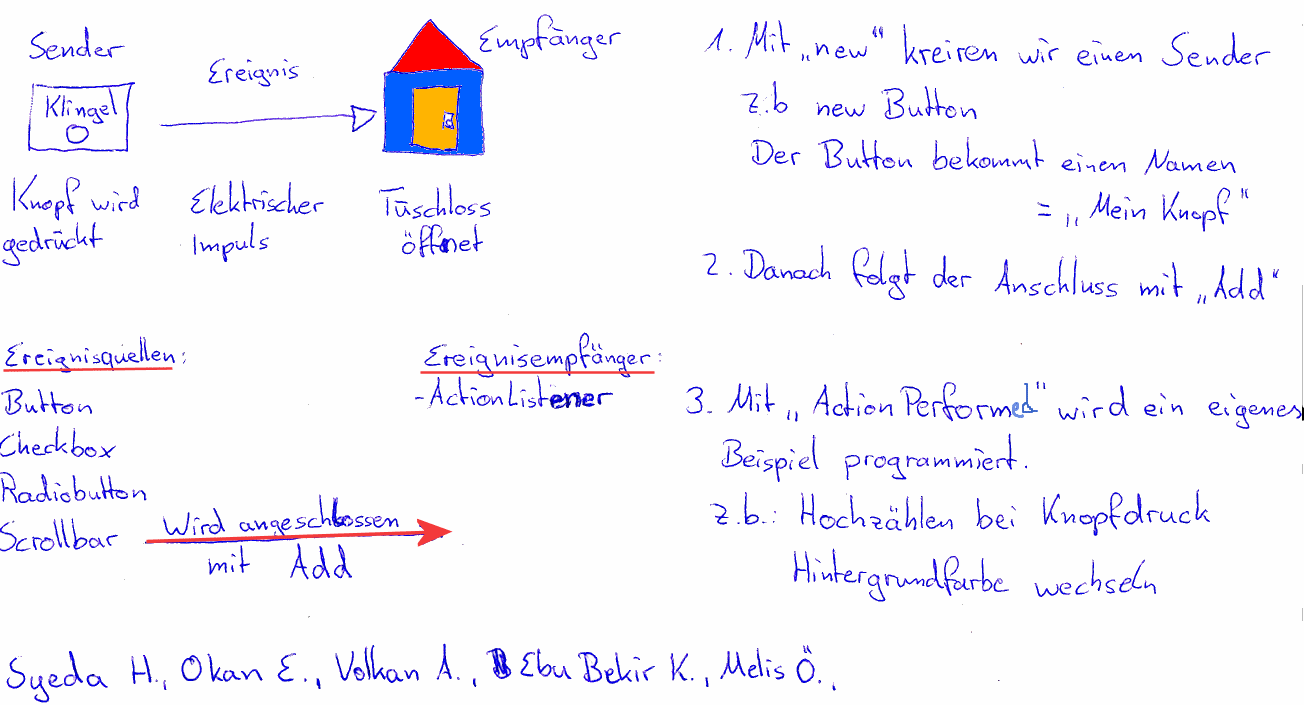 Sender
Ereignis
Empfänger
Klingel
Knopf wird
gedrückt
Elektrischer
Impuls
Tüschloss
öffnet
Ereignisquellen:
Button
Checkbox
Radiobutton
Scrollbar
Wird angeschlossen
mit Add
Ereignisempfänger:
- ActionListener
1. Mit „new“ kreiren wir einen Sender
z.b new Button
Der Button bekommt einen Namen
= „Mein Knopf“
2. Danach folgt der Anschluss mit „Add“
3. Mit „ActionPerformed“ wird ein eigenes
Beispiel programmiert.
z.b.: Hochzählen bei Knopfdruck
Hintergrundfarbe wechseln
Syeda H., Okan E., Volkan A., Ebu Bekir K., Melis Ö.,